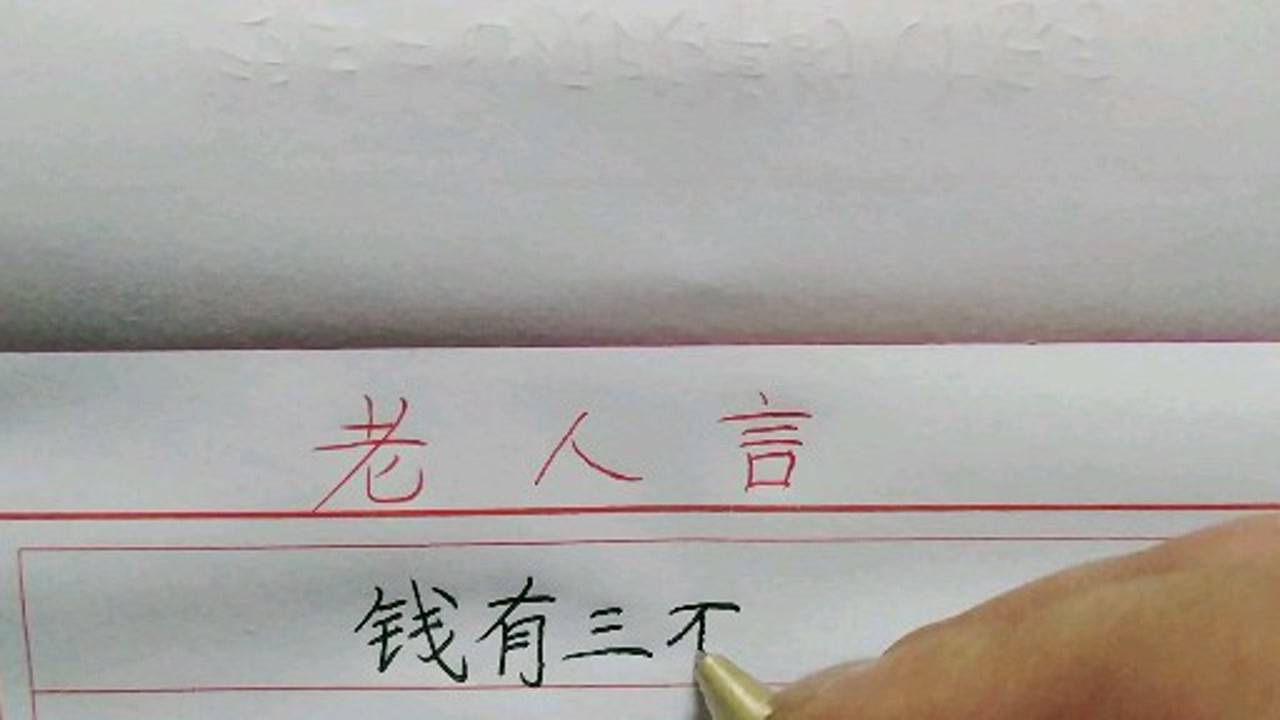 老人言
钱有三不